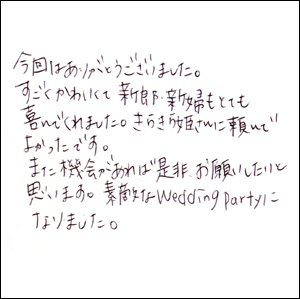 今回はありがとうございました。
すごくかわいくて 新郎・新婦もとても
喜んでくれました。きらきら姫さんに頼んで
よかったです。
また機会があれば是非、お願いしたいと
思います。素敵なWedding partyに
なりました。